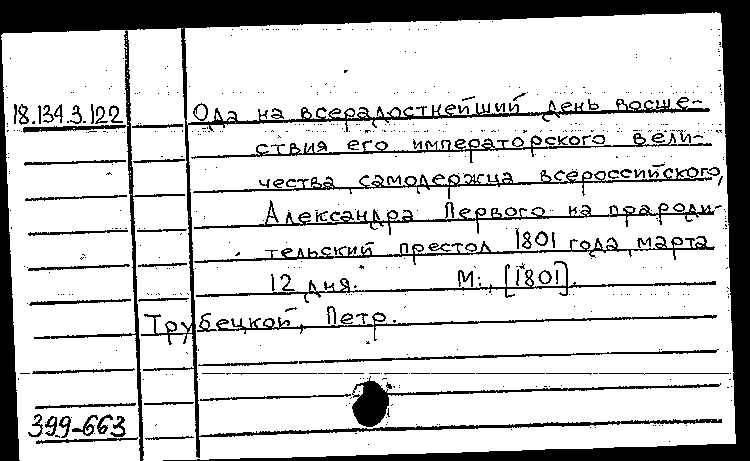 18.134.3.122 Ода на всерадостнейший день восше-
ствия его императорского вели-
чества, самодержца всероссийского,
Александра Первого на прароди-
тельский престол 1801 года, марта
12 дня. М:, [1801].
Трубецкой, Петр.
399-663